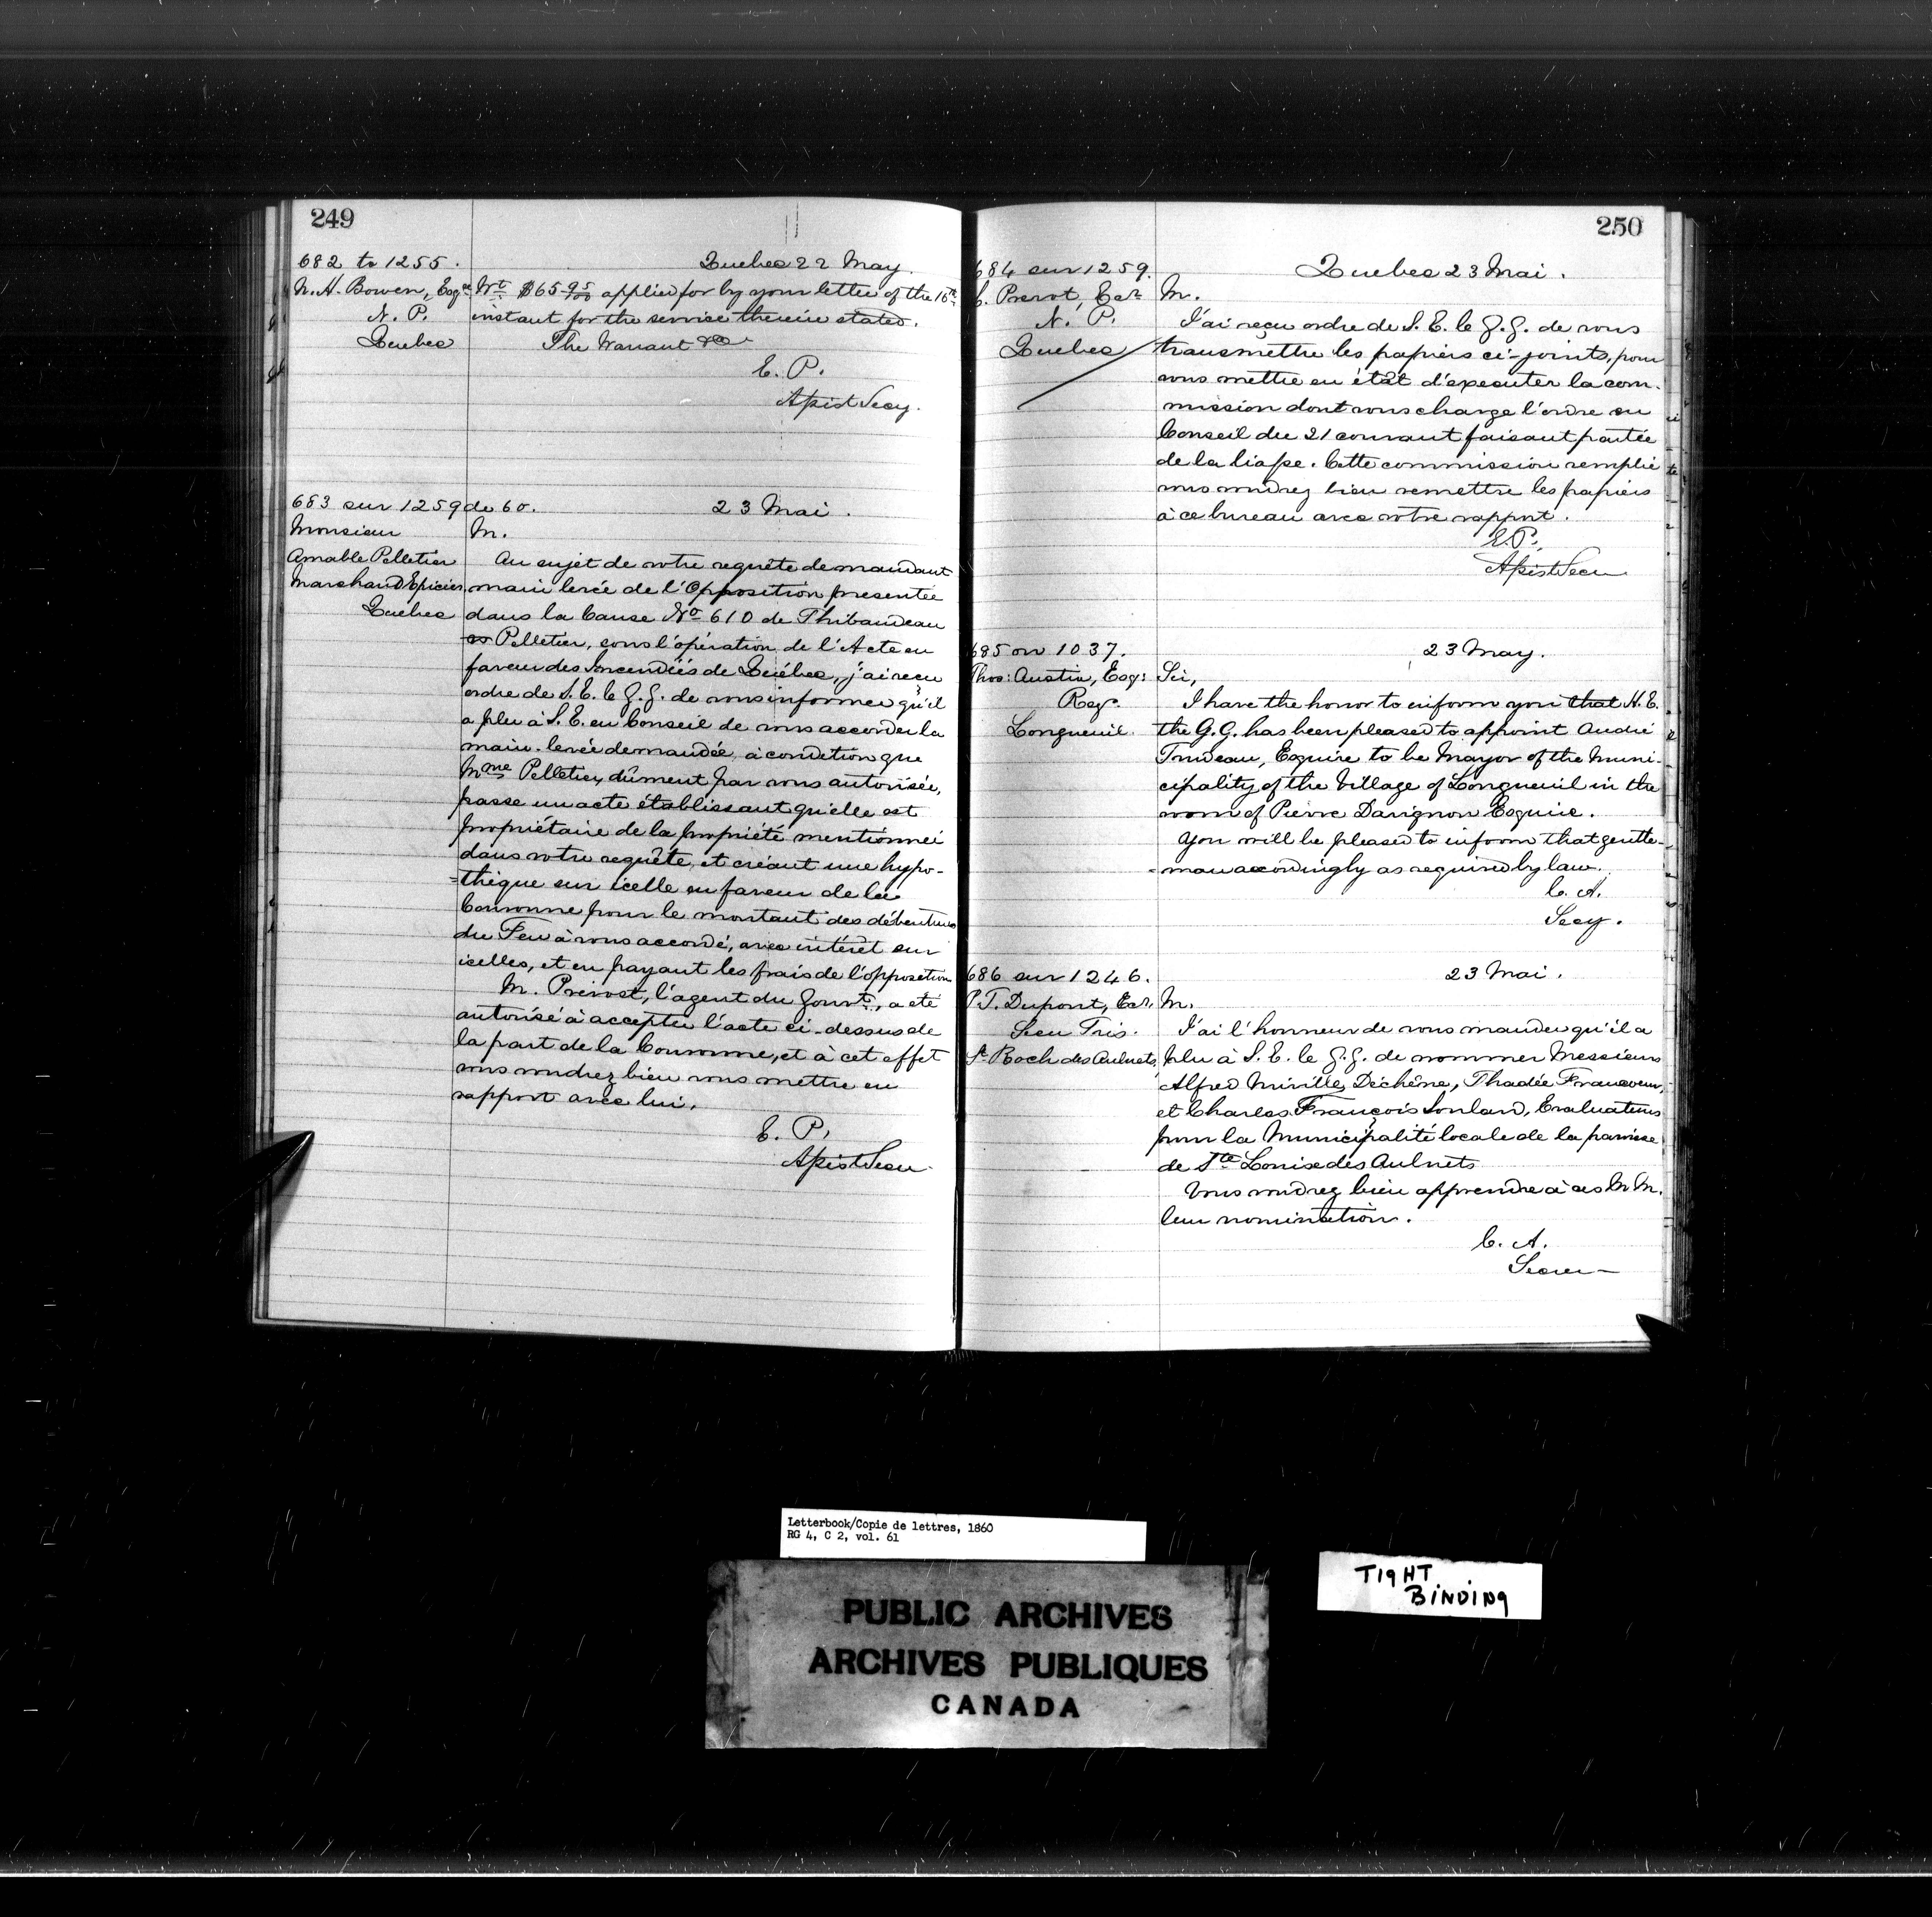 249
682 to 1255.
Quebec 22 May.
N. A. Bowen, Esqre
N. P.
Quebec
Wt. $65 95/100 applied for by your letter of the 16th
instant for the service therein stated.
The Warrant &c
E. P.
Assist Secy.
683 sur 1259 de 60.
23 Mai.
Monsieur
Amable Pelletier
Marchand Epicier
Quebec
M.
Au sujet de votre requête demandant
main levée de l'Opposition presentée
dans la Cause No 610 de Thibaudeau
vs Pelletier, sous l'opération de l'Acte en
faveur des Incendiés de Québec, j'ai reçu
ordre de S. E. le G. G. de vous informer qu'il
a plu à S. E. en Conseil de vous accorder la
main-levée demandée à condition que
Mme Pelletier, dûment par vous autorisée,
passe un acte établissant qu'elle est
propriétaire de la propriété mentionnée
dans votre requête, et créant une hypo-
=thèque sur icelle en faveur de la
Couronne pour le montant des débentures
du Feu à vous accordé, avec intérêt sur
icelles, et en payant les frais de l'opposition
M. Prévost, l'agent du Gouvt., a été
autorisé à accepter l'acte ci-dessus de
la part de la Couronne, et à cet effet
vous voudrez bien vous mettre en
rapport avec lui.
E. P.
Assist Secre
250
684 sur 1259.
Quebec 23 Mai.
Prevot, Ecr
N. P.
Quebec
M.
J'ai reçu ordre de S. E. le G. G. de vous
transmettre les papiers ci-joints, pour
vous mettre en état d'executer la com-
mission dont vous charge l'ordre en
Conseil du 21 courant faisant partie
de la liasse. Cette commission remplie
vous voudrez bien remettre les papiers
à ce bureau avec votre rapport.
E. P.
Assist Secre
685 on 1037.
23 May.
Thos: Austin, Esq:
Regr.
Longueuil.
Sir,
I have the honor to inform you that H. E.
the G. G. has been pleased to appoint André
Trudeau, Esquire to be Mayor of the Muni-
cipality of the Village of Longueuil in the
room of Pierre Davignon Esquire.
You will be pleased to inform that gentle-
-man accordingly as required by law.
C. A.
Secy.
686 sur 1246.
23 Mai.
P. T. Dupont, Ecr,
Secre Tris.
St. Roch des Aulnets,
M.
J'ai l'honneur de vous mander qu'il a
plu à S. E. le G. G. de nommer Messieurs
Alfred Miville Dechêne, Thadée Francoeur,
et Charles François Soulard, Evaluateurs
pour la Municipalité locale de la paroisse
de Ste Louise des Aulnets
Vous voudrez bien apprendre à ces M. M.
leur nomination.
C. A.
Secre
Letterbook/Copie de lettres, 1860
RG 4, C 2, vol. 61
TIGHT
BINDING
PUBLIC ARCHIVES
ARCHIVES PUBLIQUES
CANADA